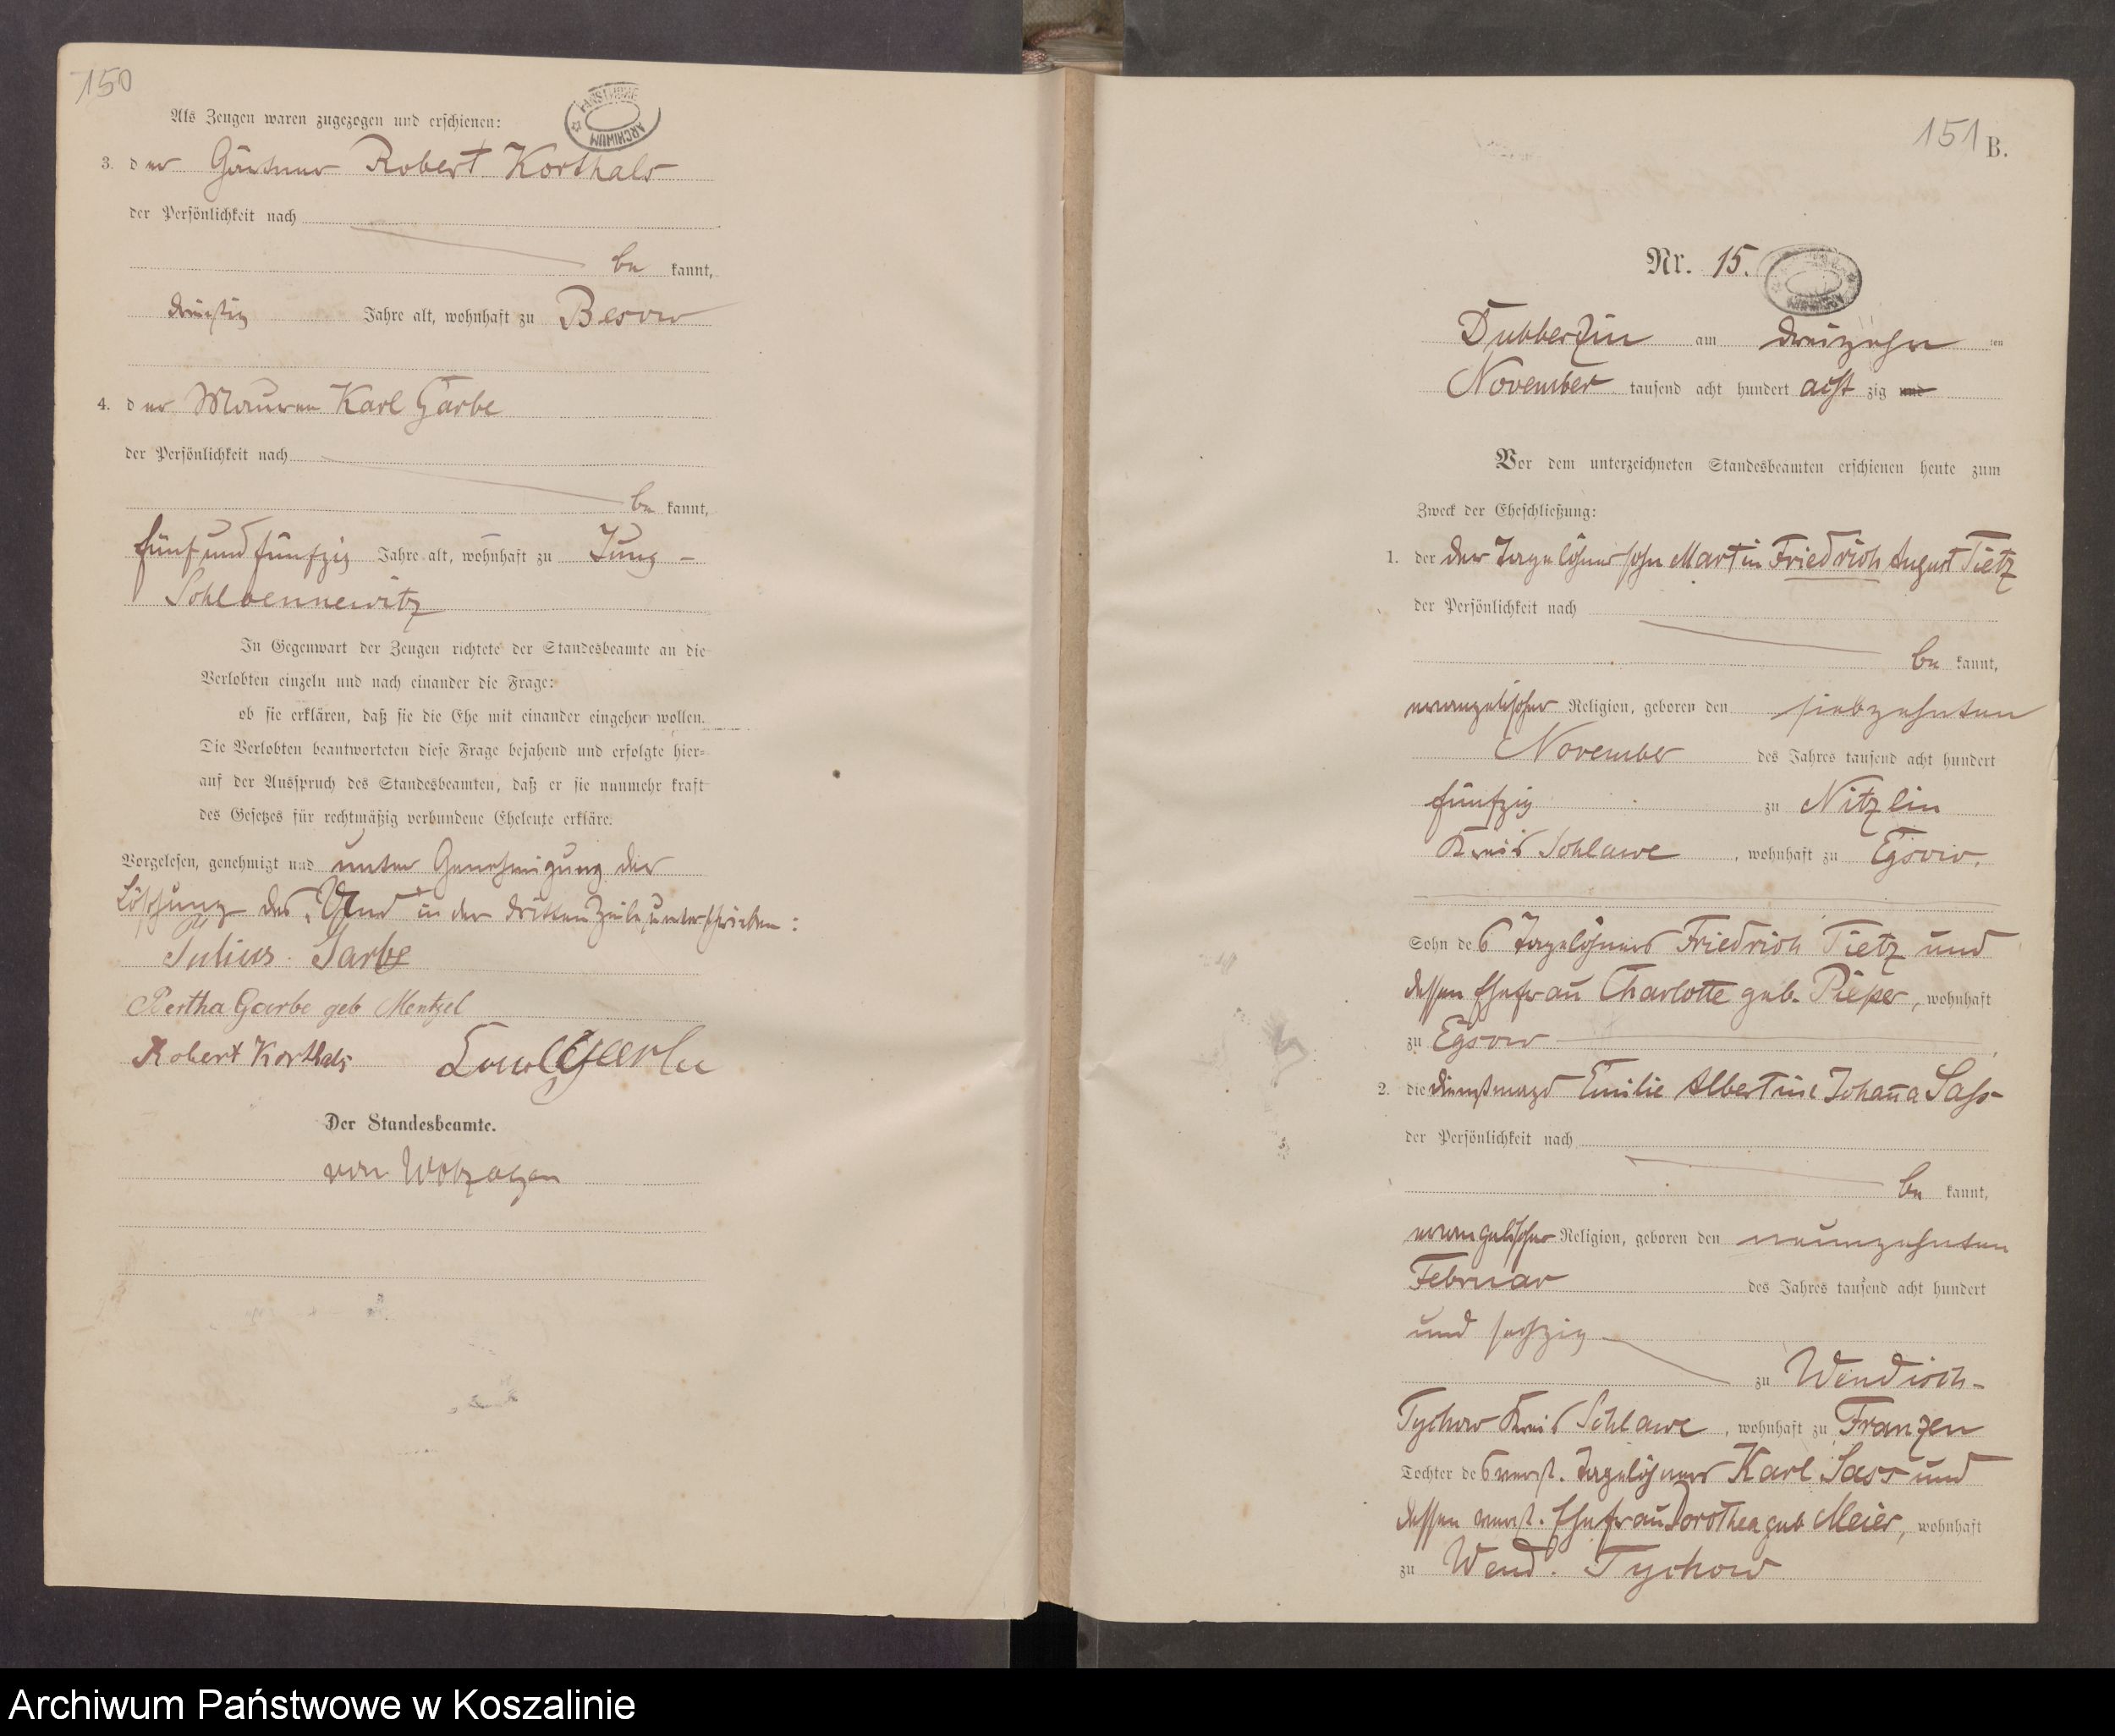 150
Als Zeugen waren zugezogen und erschienen:
3. der Gärtner Robert Korthals
der Persönlichkeit nach
be kannt,
dreißig Jahre alt, wohnhaft zu Besow
4. der Maurer Karl Garbe
der Persönlichkeit nach
be kannt,
fünf und fünfzig Jahre alt, wohnhaft zu Jung-
Schlennewitz
In Gegenwart der Zeugen richtete der Standesbeamte an die
Verlobten einzeln und nach einander die Frage:
ob sie erklären, daß sie die Ehe mit einander eingehen wollen.
Die Verlobten beantworteten diese Frage bejahend und erfolgte hier-
auf der Ausspruch des Standesbeamten, daß er sie nunmehr kraft
des Gesetzes für rechtmäßig verbundene Eheleute erkläre.
Vorgelesen, genehmigt und unter Genehmigung der
Löschung des "Und" in der dritten Zeile unterschrieben:
Julius Garbe
Bertha Garbe geb Mentzel
Robert Korthals
Der Standesbeamte.
von
151 B.
ARCHIWUM
Nr. 15.
Dubberzin am dreizehn ten
November tausend acht hundert acht zig und
Vor dem unterzeichneten Standesbeamten erschienen heute zum
Zweck der Eheschließung:
1. der der Tagelöhnersohn Martin Friedrich August Tietz
der Persönlichkeit nach
be kannt,
evangelischer Religion, geboren den siebzehnten
November des Jahres tausend acht hundert
fünfzig zu Nitzlin
Kreis Schlawe, wohnhaft zu Egsow.
Sohn des Tagelöhners Friedrich Tietz und
dessen Ehefrau Charlotte geb. Pieper, wohnhaft
zu Egsow
2. die Dienstmagd Emilie Albertine Johanna Sass
der Persönlichkeit nach
be kannt,
evangelischer Religion, geboren den neunzehnten
Februar des Jahres tausend acht hundert
und sechzig
zu Wendisch-
Tychow Kreis Schlawe, wohnhaft zu Franzen
Tochter des verst. Tagelöhners Karl Sass und
dessen verst. Ehefrau Dorothea geb Meier, wohnhaft
zu Wend. Tychow
Archiwum Państwowe w Koszalinie